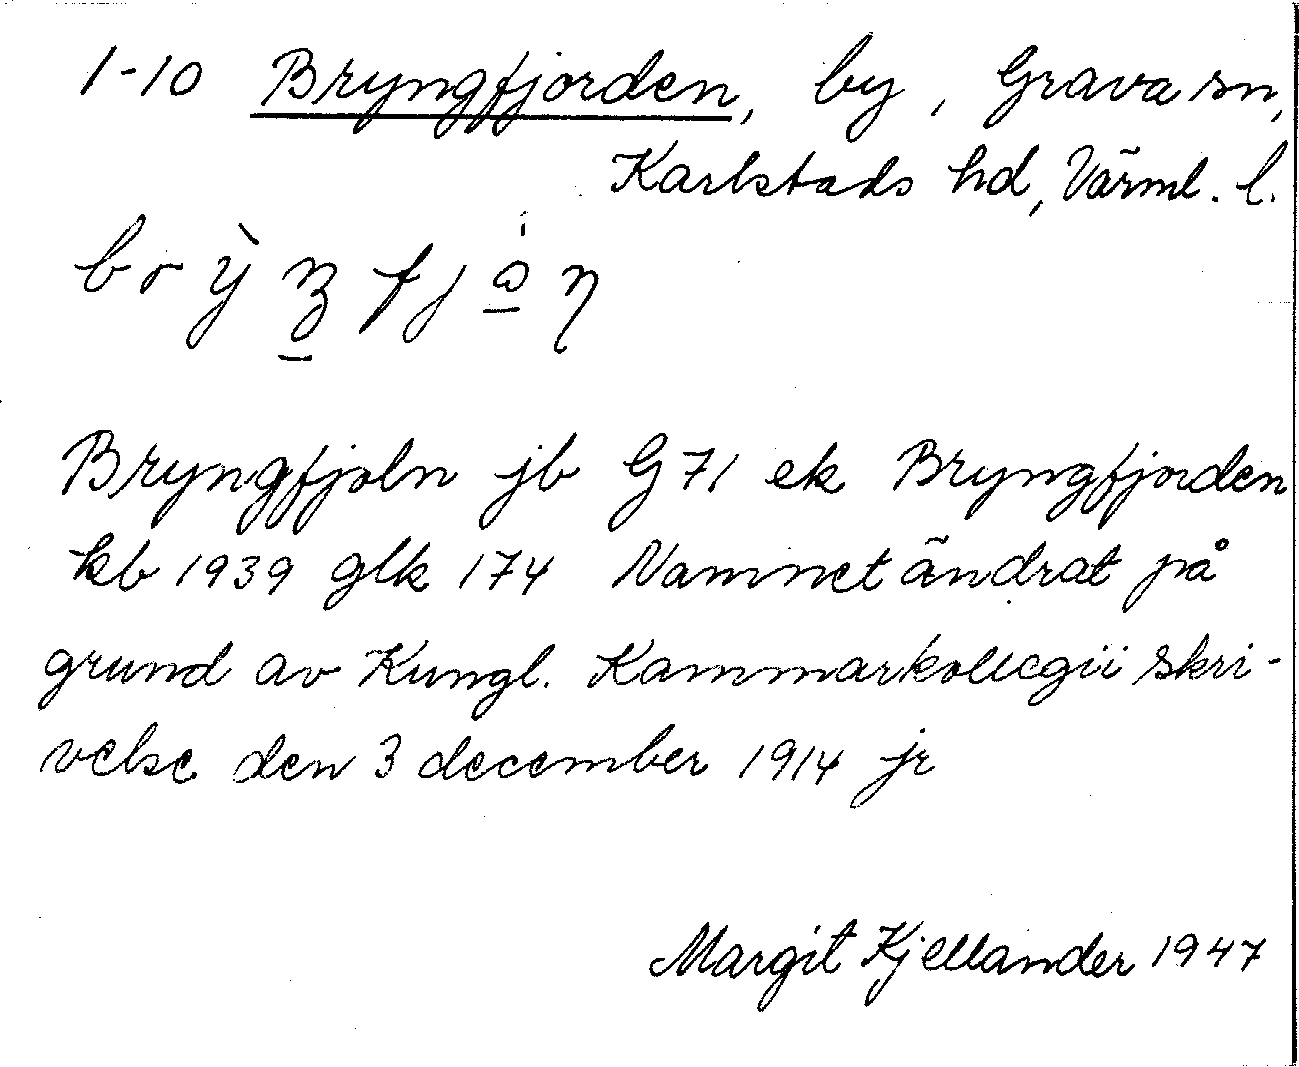 1-10 Bryngfjorden, by, Grava sn,
Karlstads hd, Värml. l.
Bryngfjoln jb G 71 ek Bryngfjorden
kb 1939 glk 174 Namnet ändrat på
grund av Kungl. Kammarkollegii skri-
velse den 3 december 1914 jr
Margit Kjellander 1947